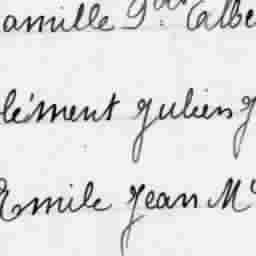 amille Gal Albe
lément Julien J
Emile Jean Me